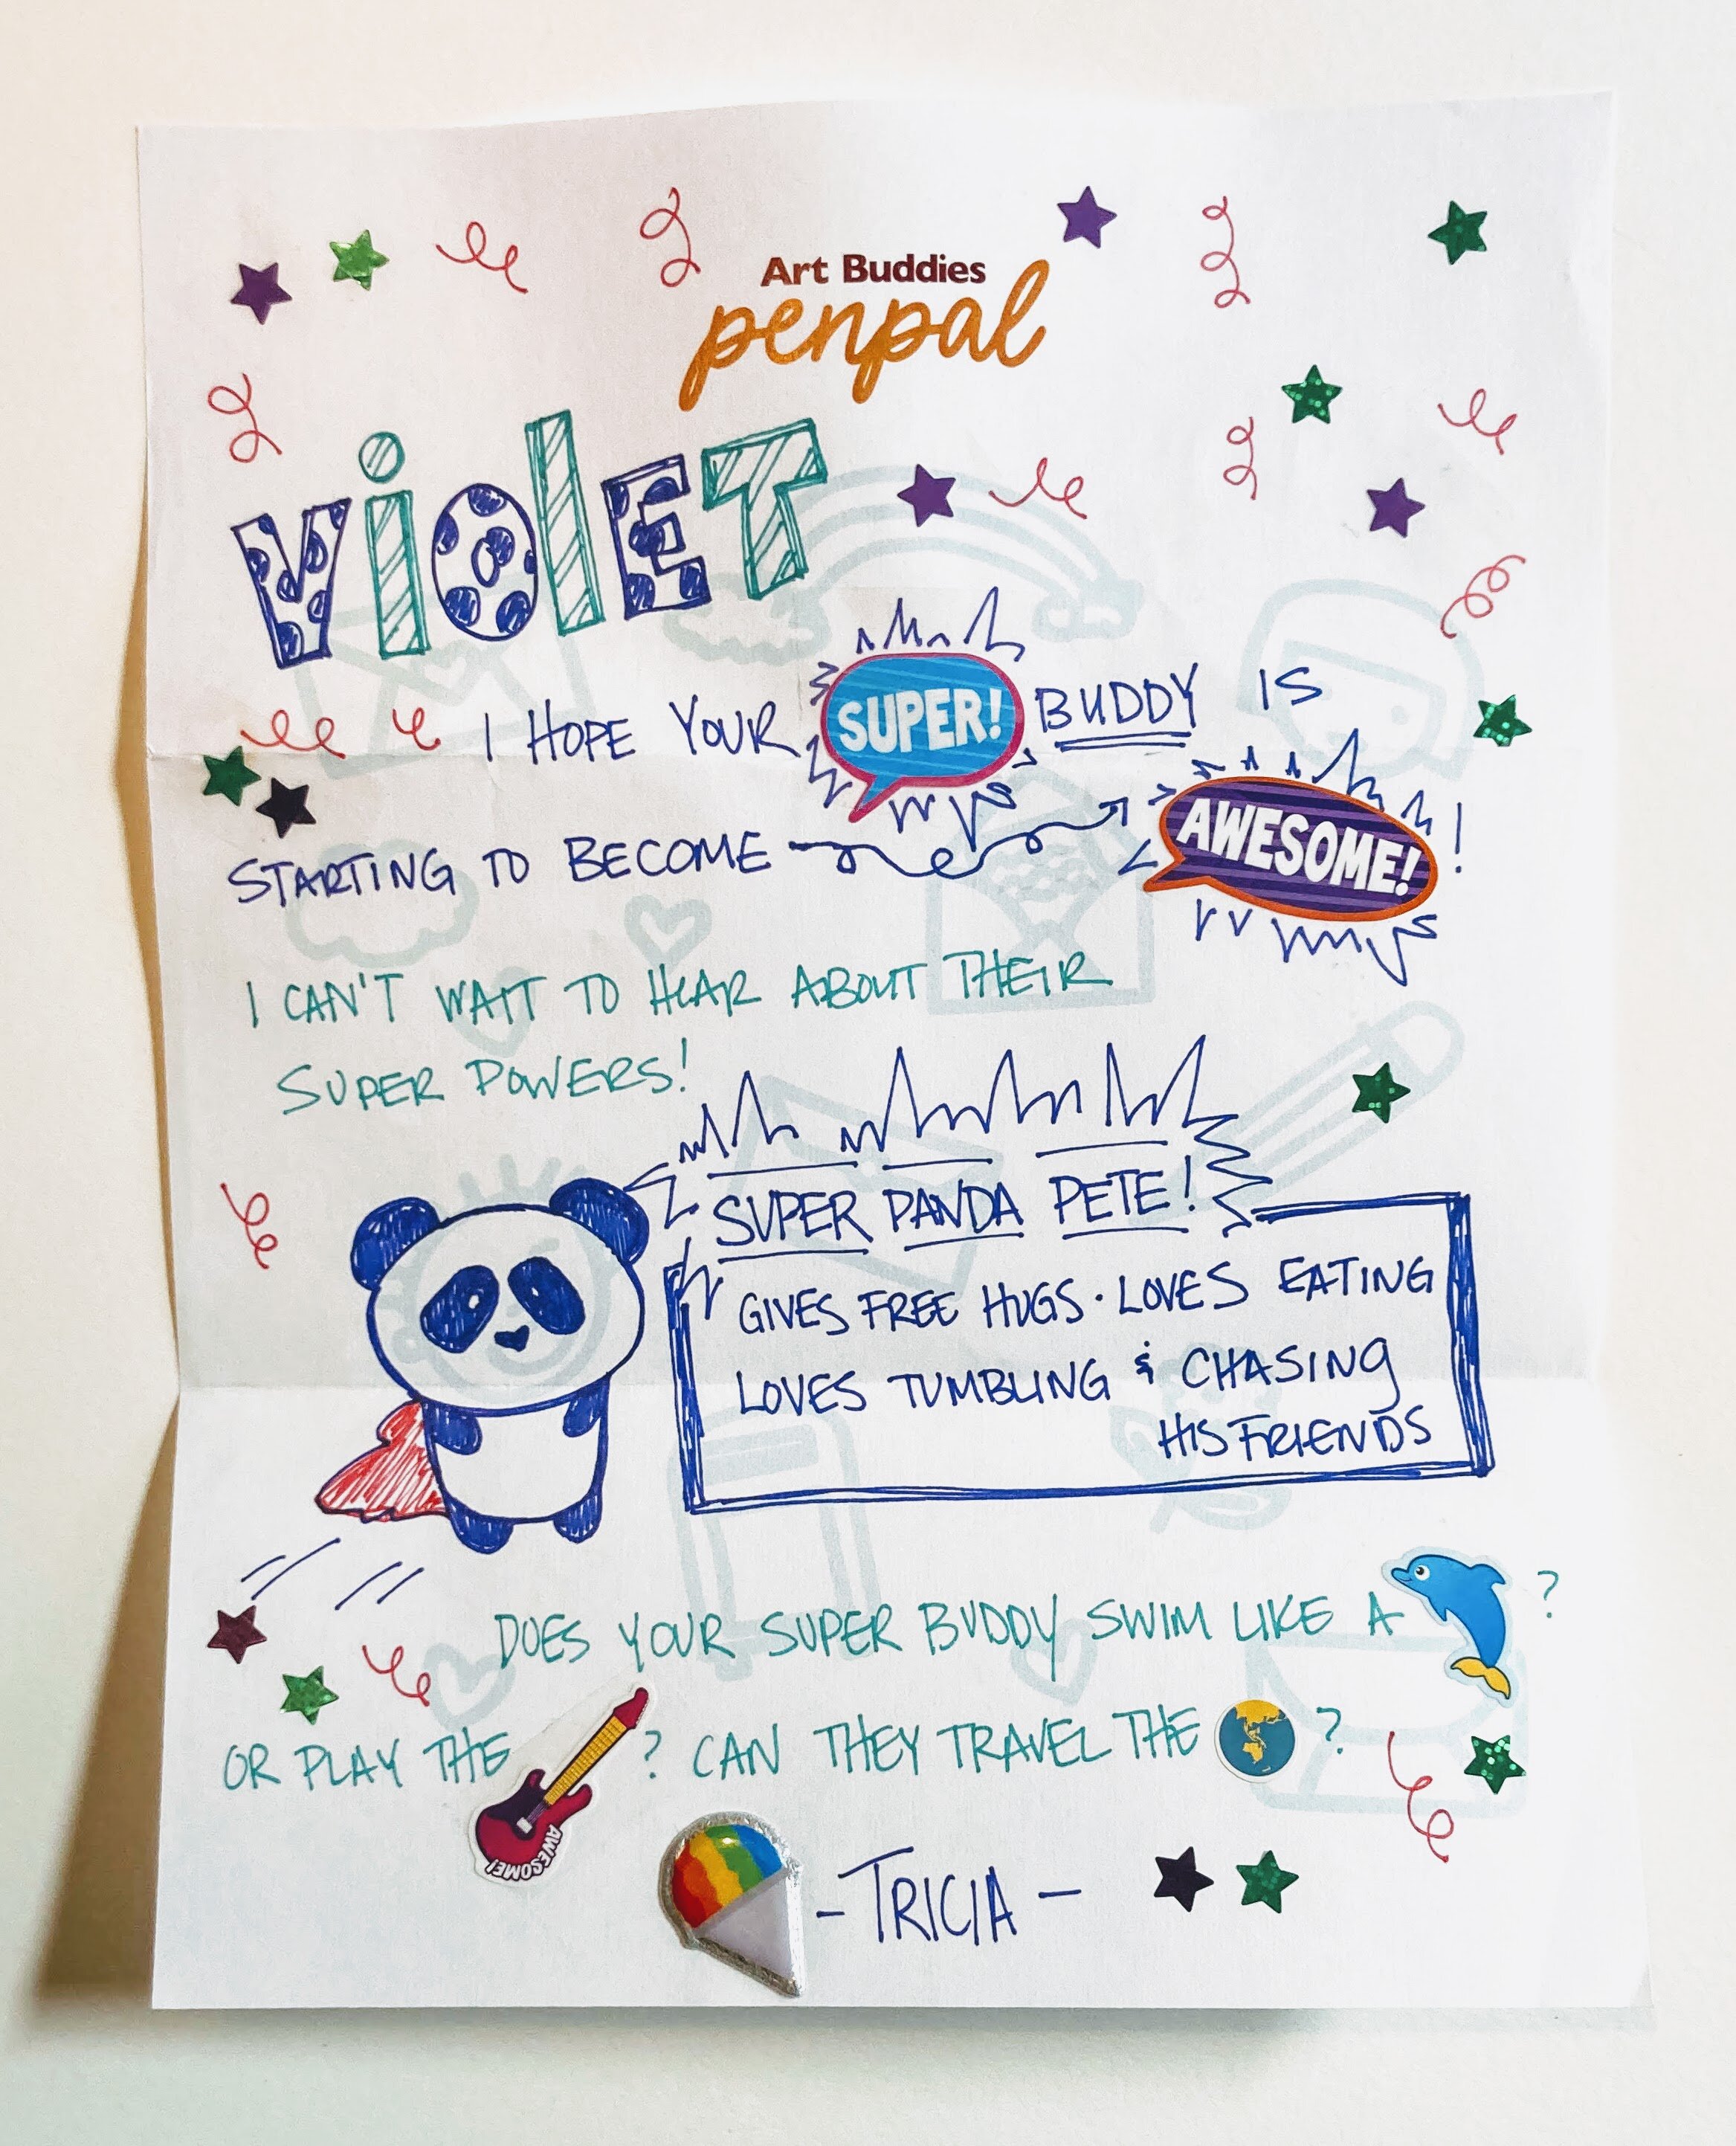 Art Buddies
penpal
VioLET
I HOPE YOUR SUPER! BUDDY IS
STARTING TO BECOME AWESOME! !
I CAN'T WAIT TO HEAR ABOUT THEIR
SUPER POWERS!
SUPER PANDA PETE!
GIVES FREE HUGS · LOVES EATING
LOVES TUMBLING & CHASING
HIS FRIENDS
DOES YOUR SUPER BUDDY SWIM LIKE A ?
OR PLAY THE ? CAN THEY TRAVEL THE ?
AWESOME!
- TRICIA -